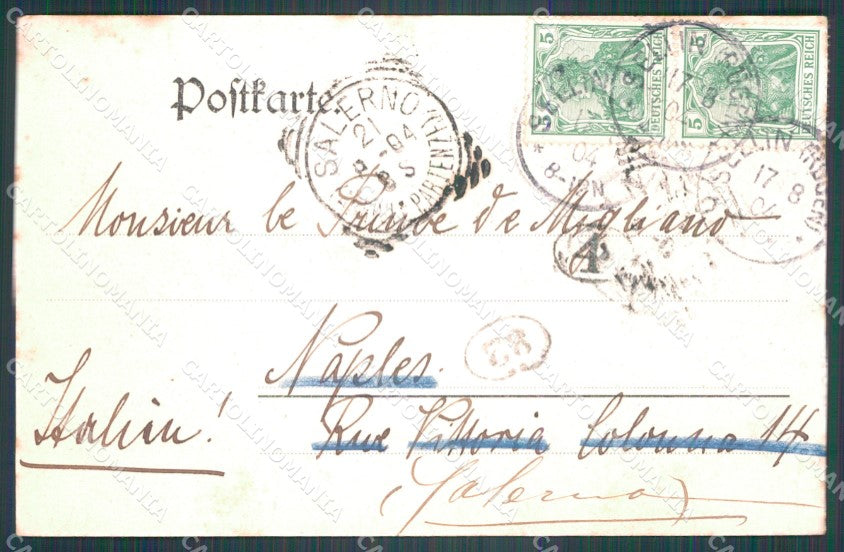 5 DEUTSCHES REICH
5 DEUTSCHES REICH
Postkarte.
SALERNO (FERROVIA)
21
8-04
8 S
SELLIN (RÜGEN)
17 8
04
8-12N
Monsieur le Prince de Migliano
4
Naples.
Rue Vittoria Colonna 14
Italien!
(Salerno)
CARTOLINOMANIA